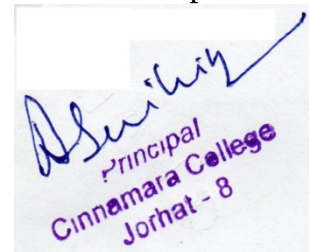 Principal
Cinnamara College
Jorhat - 8